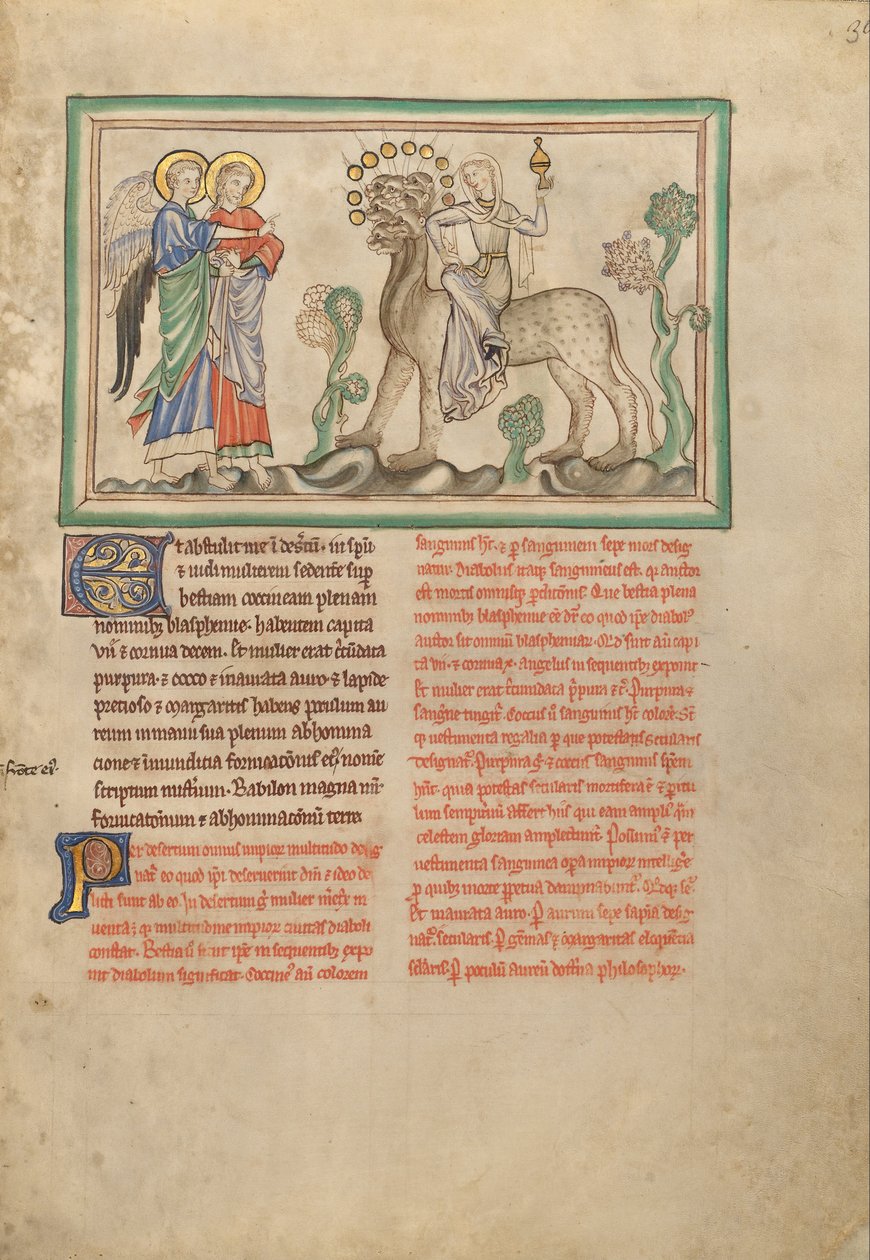 30
Et abstulit me ī desertū· in spū
⁊ uidi mulierem sedentē sup
bestiam coccineam plenam
nominibꝫ blasphemie· habentem capita
vii ⁊ cornua decem· Et mulier erat circūdata
purpura ⁊ cocco ⁊ inaurata auro ⁊ lapide
precioso ⁊ margaritis habens poculum au
reum in manu sua plenum abhomina
cione ⁊ inmundicia fornicacionis eiꝰ· nomē
scriptum misterium· Babilon magna mr̄
fornicationum ⁊ abhominacionū terre
ī fronte eiꝰ·
Per desertum omnis impioꝝ multitudo desig
natꝛ eo quod ip̄i deseruerint dn̄m ⁊ ideo de
licti sunt ab eo· In desertum gͦ mulier
uenta ē qꝛ multitudine impioꝝ ciuitas diaboli
constat· Bestia ů sicut ip̄e in sequentibꝫ expo
nit diabolum significat· Coccineꝰ aū colorem
sanguinis hꝫ· ⁊ ꝑ sanguinem sepe mors desig
natur· Diabolus itaqꝫ sanguineus est· qꝛ auctor
est mortis omnisqꝫ ꝑdicionis· Que bestia plena
nominibꝫ blasphemie eē dr̄ eo quod ip̄e diabolꝰ
auctor sit omniū blasphemiaꝝ· Qd̄ sint aū capi
ta vii· ⁊ cornua x· angelus in sequentibꝫ exponit
Et mulier erat circūdata purpura ⁊ cͣ· Purpura
sangine tingitꝛ· Coccus ů sanguinis hꝫ colorē· Sūt
qꝫ uestimenta regalia per que potestatis secularis
designatꝛ· Purpura gͦ ⁊ coccus sanguinis spem
hn̄t· quia potestas secularis mortifera ē ⁊ ꝑitu
lum sempitnū affert hiis qui eam ampliꝰ qͣm
celestem gloriam amplectunt· Possumꝰ ⁊ per
uestimenta sanguinea opera impioꝝ intellige
ꝑ quibꝫ morte ꝑpetua dampnabunt·
Et inaurata auro· ꝑ aurum sepe sapīa desig
natꝛ secularis· ꝑ gēmas ⁊ margaritas eloquētia
sc̄laris· ꝑ poculū aureū doctͥna philosophoꝝ·